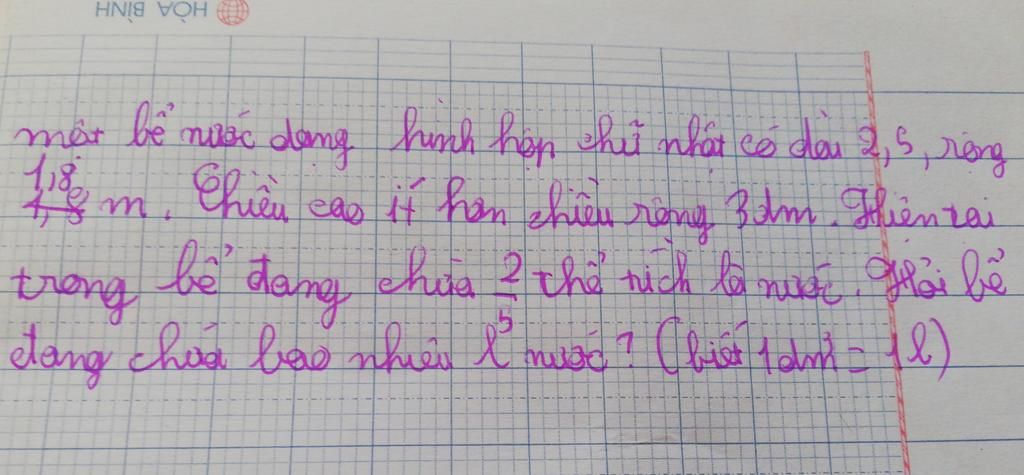 HÒA BÌNH
một bể nước dạng hình hộp chữ nhật có dài 2,5, rộng
1,8 m. Chiều cao ít hơn chiều rộng 3dm. Hiện tại
trong bể đang chứa 2/5 thể tích là nước. Hỏi bể
đang chứa bao nhiêu l nước? (biết 1dm³ = 1l)